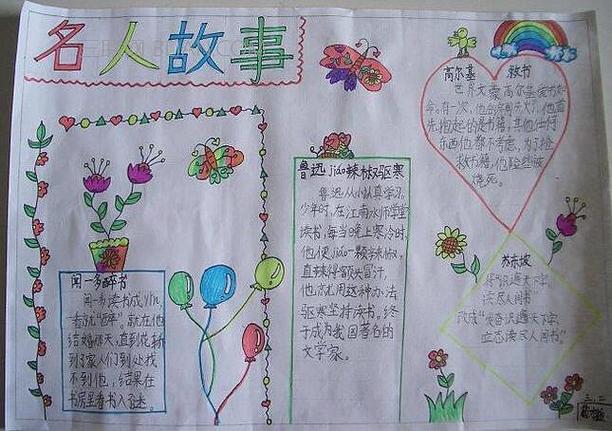 名人故事
高尔基 救书
世界文豪高尔基爱书如
命,有一次,他的房间失火了,他首
先抱起的是书籍,其他任何
东西他都不考虑,为了抢
救书籍,他险些被
烧死。
鲁迅jiáo辣椒驱寒
鲁迅从小认真学习。
少年时,在江南水师学堂
读书,每当晚上寒冷时,
他便jiáo一颗辣椒,
直辣得额头冒汗,
他就用这种办法
驱寒坚持读书。终
于成为我国著名的
文学家。
闻一多醉书
闻一多读书成yǐn,
一看就"醉"。就在他
结婚那天,直到花轿
到了家人们到处找
不到他,结果在
书房里看书入了迷。
苏东坡
"识遍天下字,
读尽人间书"
改成"发奋识遍天下字,
立志读尽人间书"。
三.二